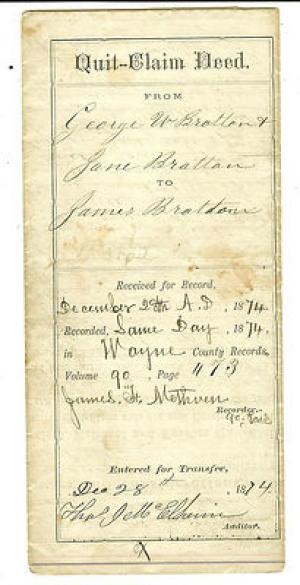 Quit-Claim Deed.
FROM
George W Bratton &
Jane Bratton
TO
James Bratton
Received for Record,
December 28th A.D., 1874
Recorded, Same Day, 1874,
in Wayne County Records,
Volume 90, Page 473
James H. Methven
Recorder.
Entered for Transfer,
Dec 28th, 1874
Thos J McElhenie
Auditor.
X